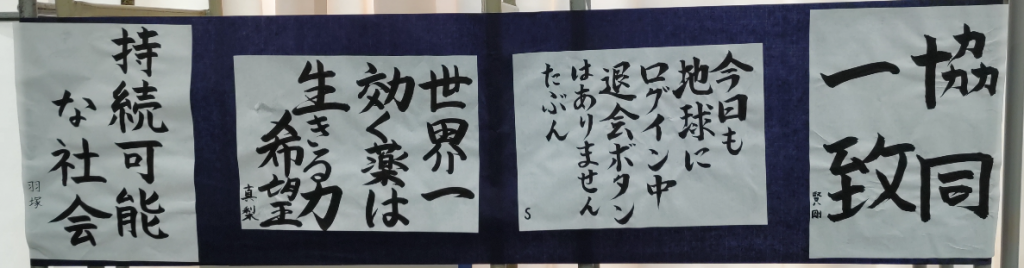 協同
一致
賢剛
今日も
地球に
ログイン中
退会ボタン
はありません
たぶん
S
世界一
効く薬は
生きる力
希望
真梨
持続可能
な社会
羽塚